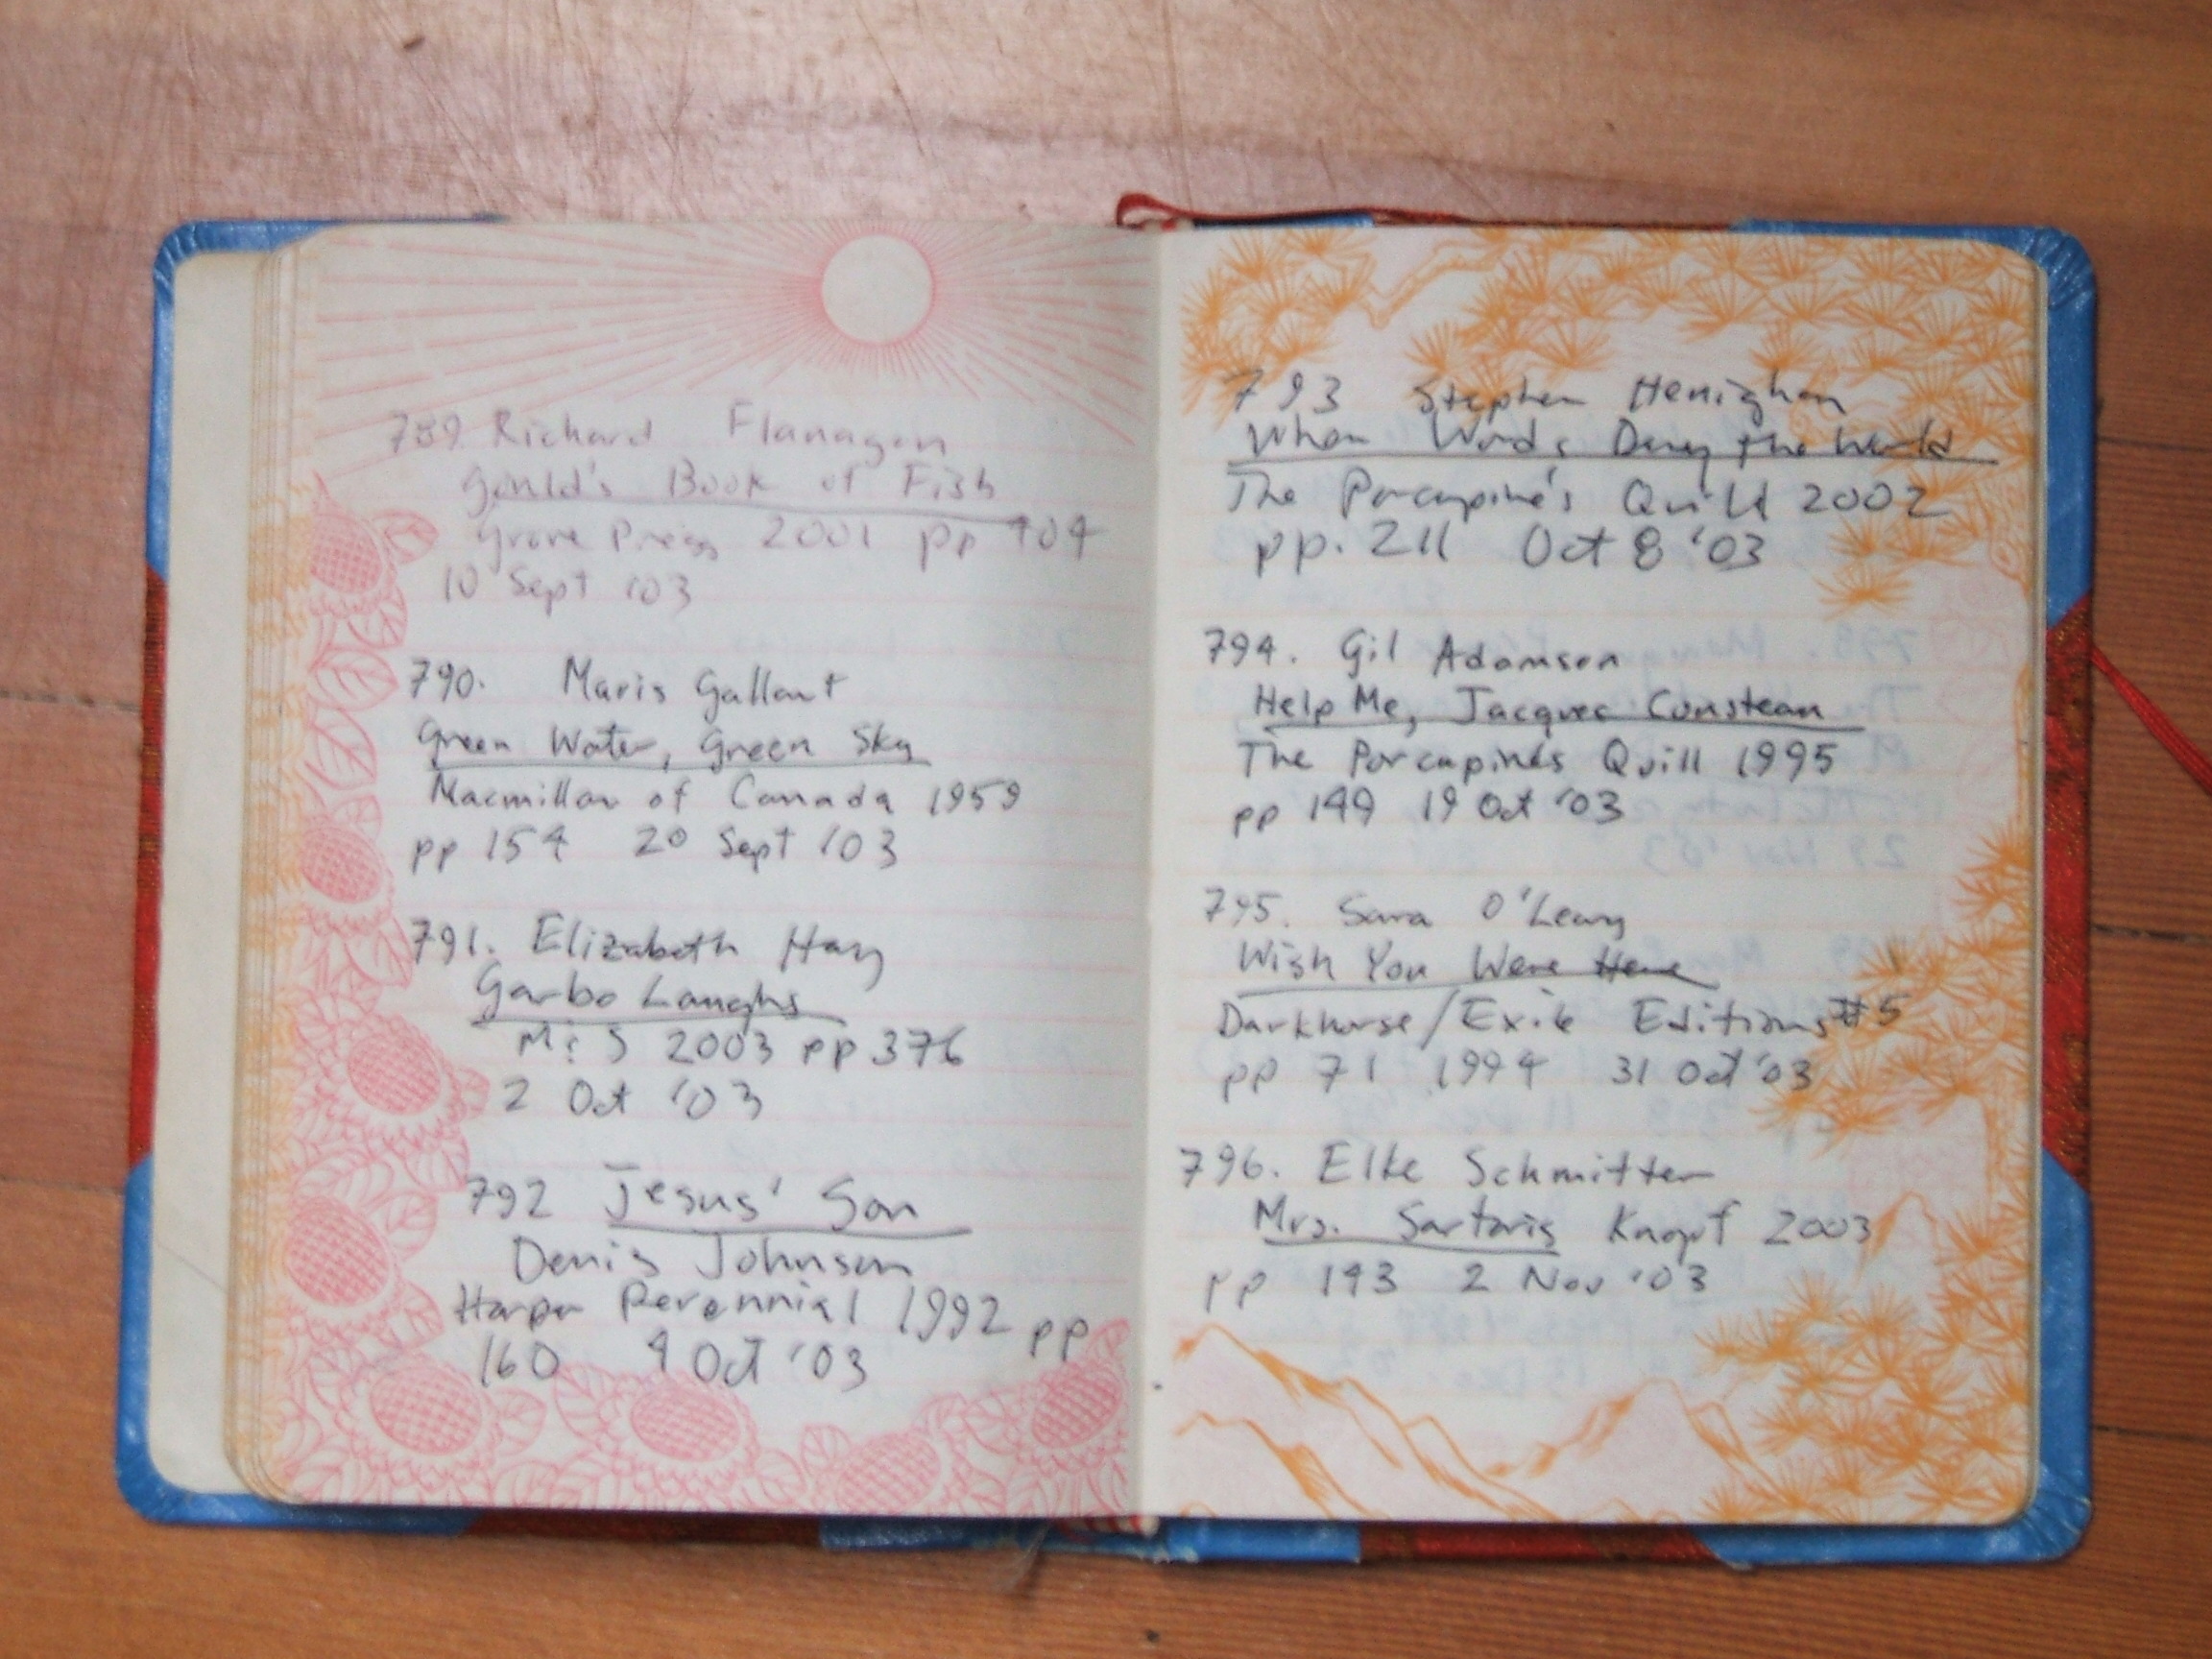 789 Richard Flanagan
Gould's Book of Fish
Grove Press 2001 pp 404
10 Sept '03
790. Mavis Gallant
Green Water, Green Sky
Macmillan of Canada 1959
pp 154 20 Sept '03
791. Elizabeth Hay
Garbo Laughs
M&S 2003 pp 376
2 Oct '03
792 Jesus' Son
Denis Johnson
Harper Perennial 1992 pp
160 4 Oct '03
793 Stephen Henighan
When Words Deny the World
The Porcupine's Quill 2002
pp. 211 Oct 8 '03
794. Gil Adamson
Help Me, Jacques Cousteau
The Porcupine's Quill 1995
pp 149 19 Oct '03
795. Sara O'Leary
Wish You Were Here
Darkhorse/Exile Editions #5
pp 71 1994 31 Oct '03
796. Elke Schmitter
Mrs. Sartoris Knopf 2003
pp 143 2 Nov '03